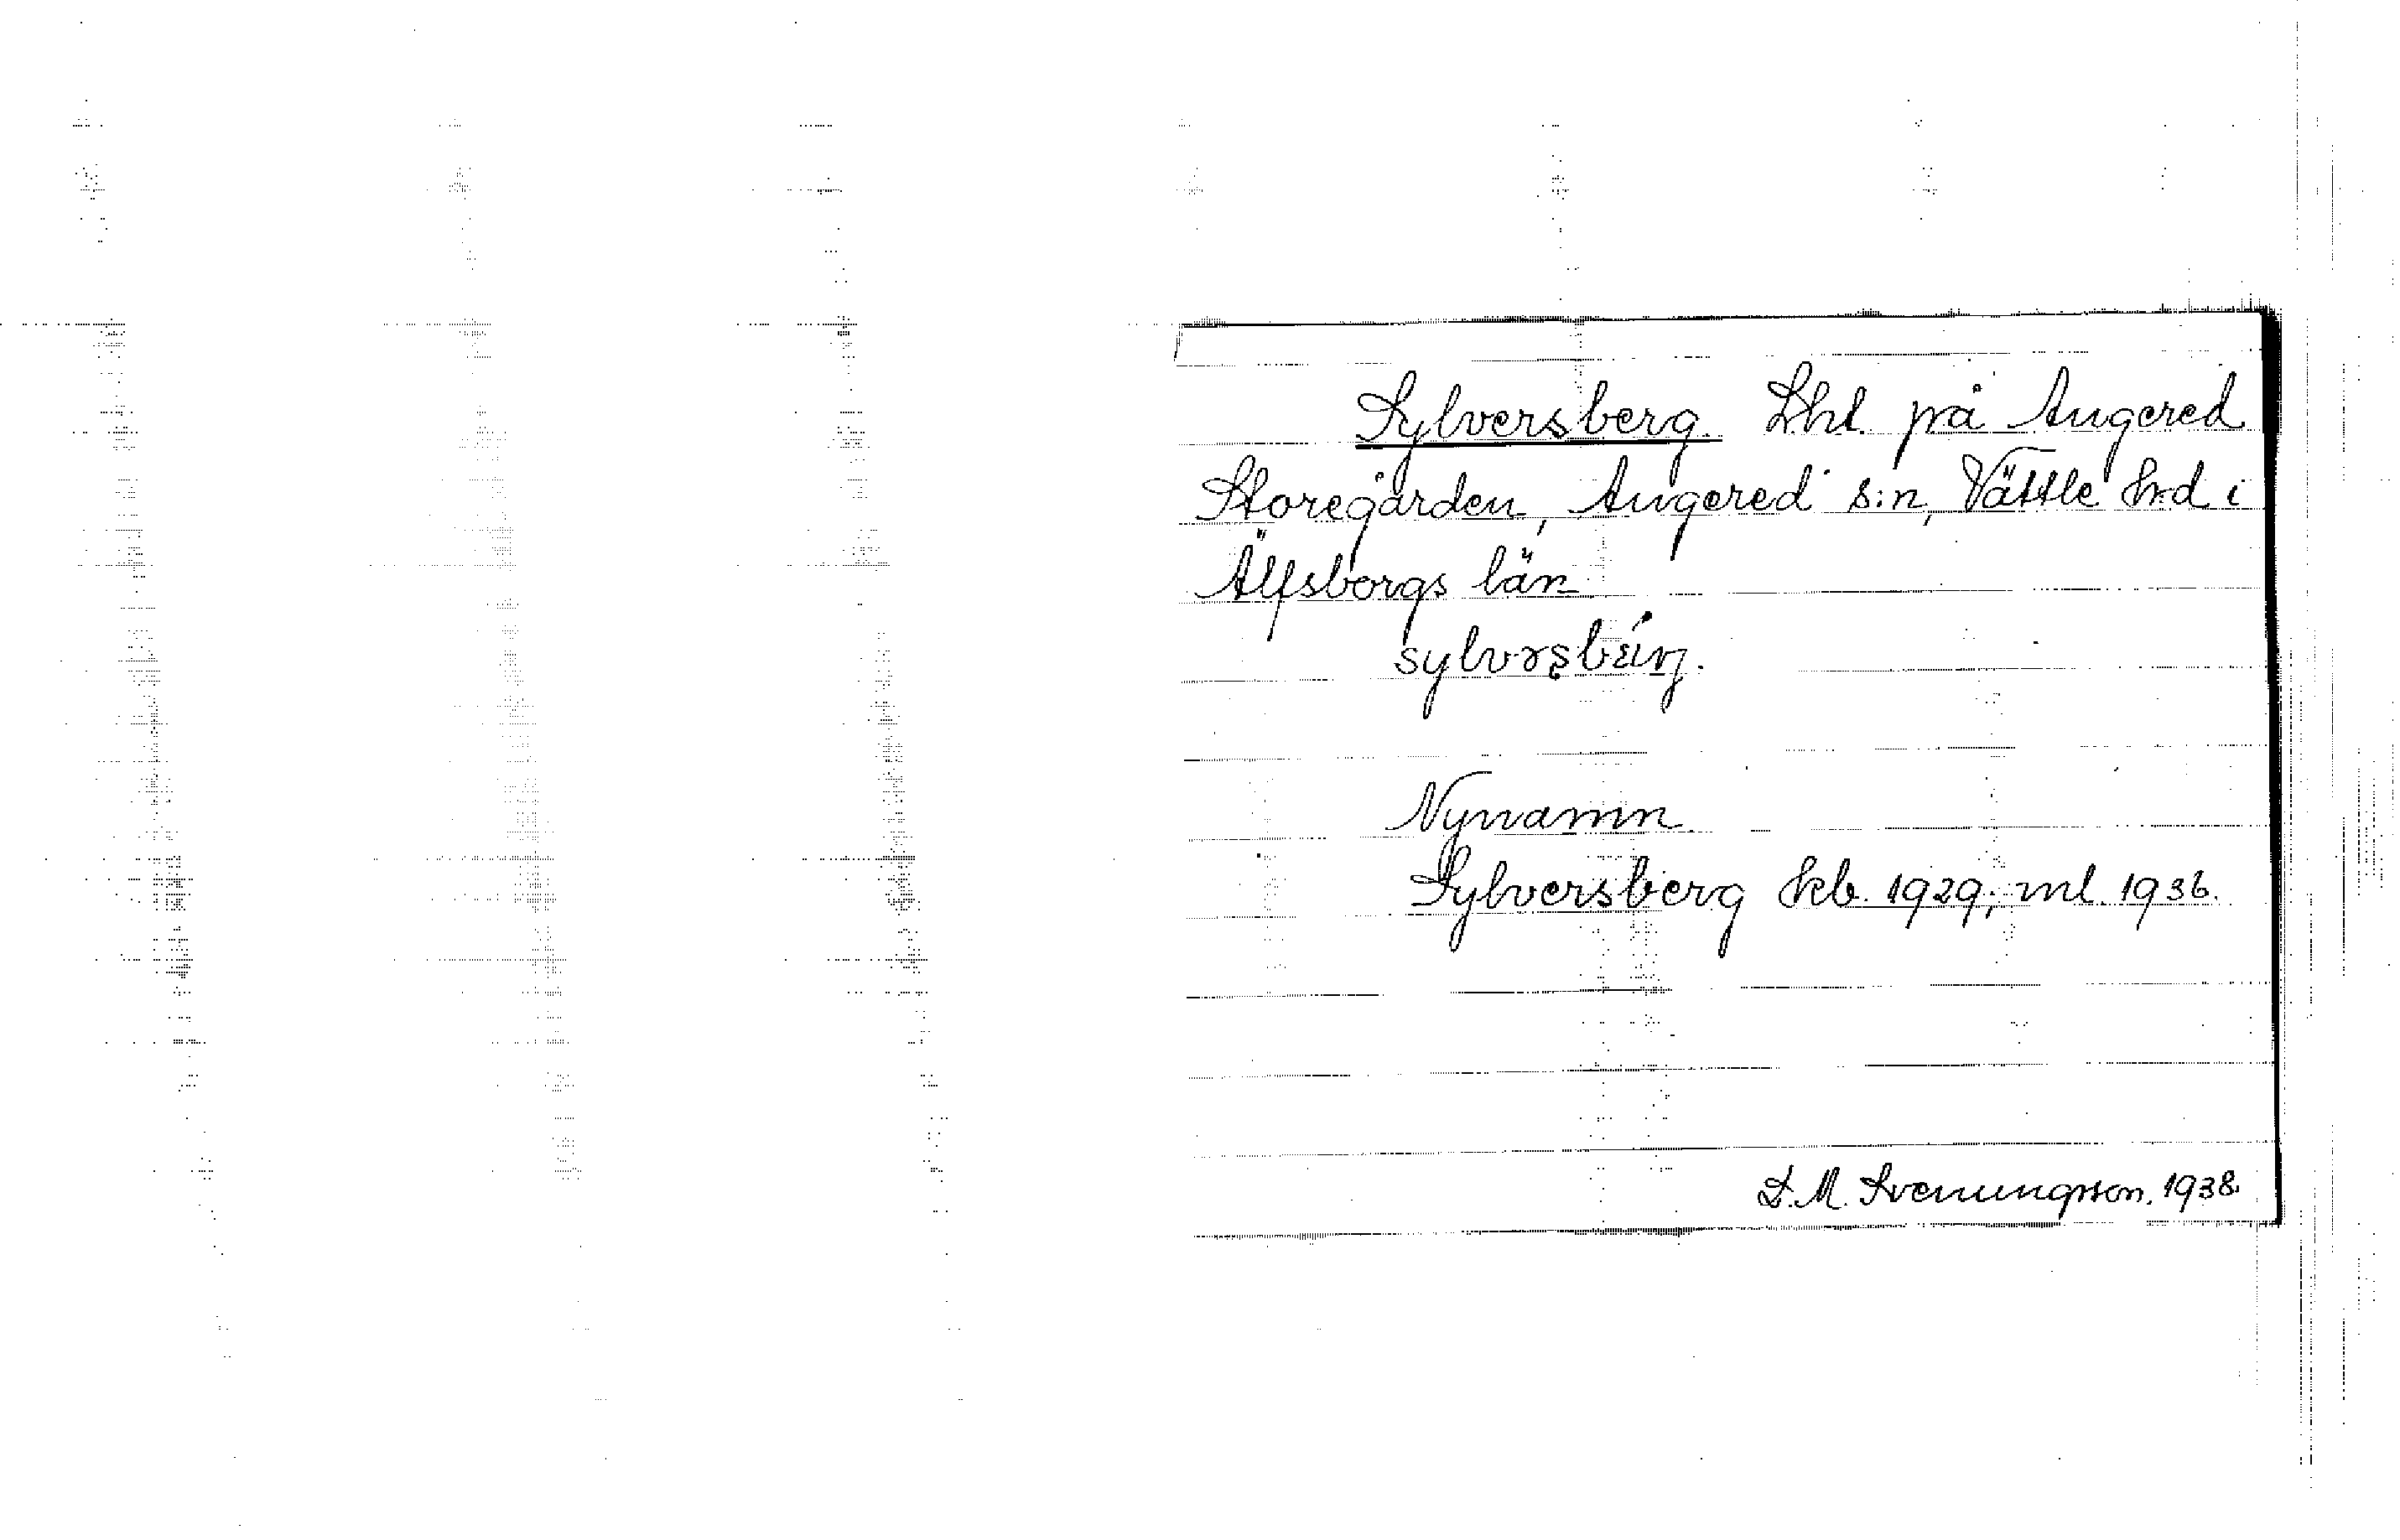 Sylversberg. Lht. på Angered
Storegården, Angered s:n, Vättle hrd i
Älfsborgs län
Nynamn
Sylversberg kb. 1929; ml. 1936.
S. M. Svenungsson. 1938.